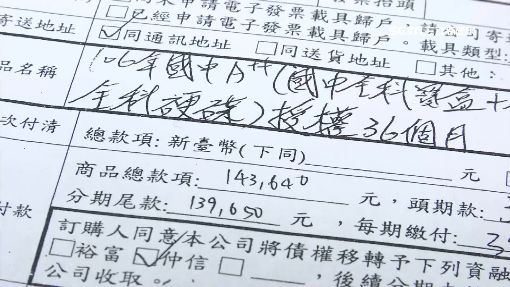 已經申請電子發票載具歸戶。
載具類型:
寄送地址 ☑同通訊地址 □同送貨地址 □其他:
品名稱 106年國中A++(國中全科寶盒+
全科硬碟)授權36個月
次付清 總款項:新臺幣(下同) 元
付款 商品總款項: 143,640 元,頭期款:
分期尾款: 139,650 元,每期繳付:
訂購人同意本公司將債權移轉予下列資融
□裕富 ☑仲信 □ ,後續分期
公司收取。